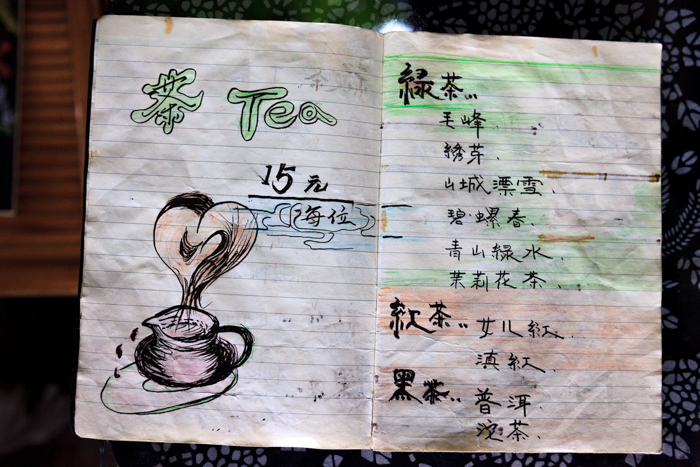 茶 Tea
15元
每位
綠茶...
毛峰.
綉芽.
山城漂雪.
碧螺春.
青山綠水.
茉莉花茶...
紅茶... 女儿紅.
滇紅.
黑茶... 普洱.
沱茶.